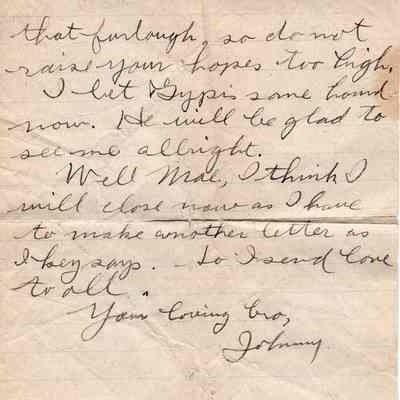 that furlough, so do not
raise your hopes too high.
I bet Gyp is some hound
now. He will be glad to
see me allright.
Well Mae, I think I
will close now as I have
to make another letter as
Ikey says. – So I send love
to all.
Your loving Bro,
Johnny.